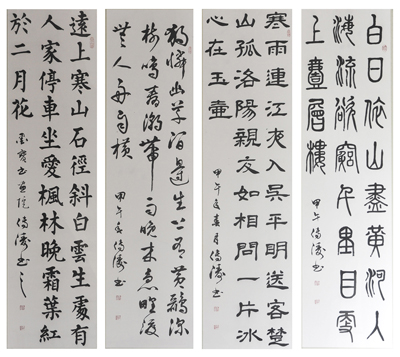 白日依山盡黃河入
海流欲窮千里目更
上壹層樓
甲午
書
寒雨連江夜入吳平明送客楚
山孤洛陽親友如相問一片冰
心在玉壺
甲午年春月
書
獨憐幽草澗邊生上有黃鸝深
樹鳴春潮帶雨晚來急野渡
無人舟自橫
甲午
書
遠上寒山石徑斜白雲生處有
人家停車坐愛楓林晚霜葉紅
於二月花